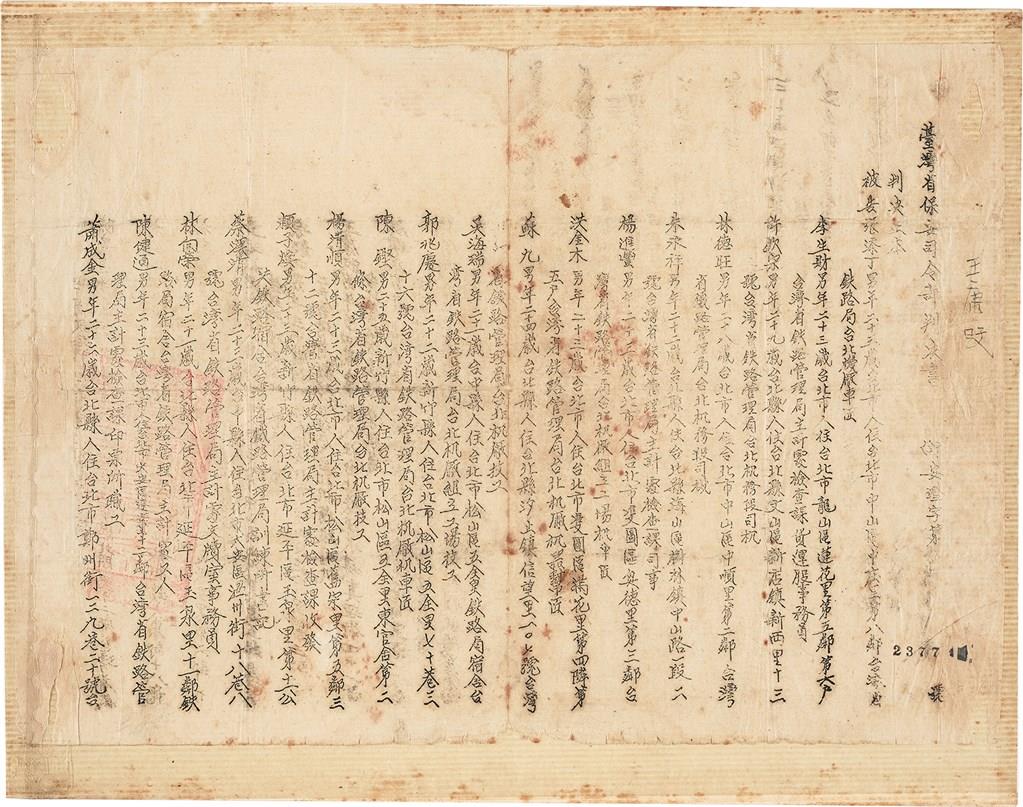 臺灣省保安司令部判決書
判決正本
被告張添丁男年三十五歲台北市人住台北市中山區
鐵路局台北機厰車匠
李生財男年二十三歲台北市人住台北市龍山區蓮花里第五鄰第六戶
台湾省鉄路管理局主計處檢查課貨運股事務員
許欽宗男年二十九歲台北縣人住台北縣文山區新店鎮新西里十三
號台湾省鉄路管理局台北机務段司机
林德旺男年二十八歲台北市人住台北市中山區中順里第二鄰台灣
省鐵路管理局台北机務段司機
朱永祥男年二十二歲台北縣人住台北縣海山區樹林鎮中山路一段二
號台湾省鉄路管理局主計處檢查課司事
楊進興男年二十二歲台北市人住台北市雙園區興德里第三鄰台
灣省鉄路管理局台北机厰組立二場机車匠
洪金木男年二十三歲台北市人住台北市雙園區綠花里第四隣第
五戶台湾省鉄路管理局台北机厰机器製車匠
蘇九男年二十四歲台北縣人住台北縣汐止鎮信望里一〇七號台湾
省鉄路管理局台北机厰技工
吴海瑞男年二十一歲台中縣人住台北市松山區五全里鉄路局宿舍台
湾省鉄路管理局台北机厰組立二場技工
郭兆慶男年二十一歲新竹縣人住台北市松山區五全里七十巷三
十六號台湾省鉄路管理局台北机厰机車匠
陳　鏗男年二十五歲新竹縣人住台北市松山區五全里東官舍第二
條台湾省鉄路管理局台北机厰技工
楊清順男年二十六歲台北市人住台北市松山區富榮里第五鄰三
十二號台湾省鉄路管理局主計處檢查課收發
男年二十三歲新竹縣人住台北市延平區玉泉里第十六公
共鉄路宿舍台湾省鐵路管理局訓練所書記
蔡澤清男年二十三歲台中縣人住台北市大安區温州街十八巷八
號台湾省鉄路管理局主計處文牘室事務員
男年二十一歲台北縣人住台北市延平區玉泉里十一鄰鉄
路局宿舍台湾省鉄路管理局主計處工人
陳健通男年二十三歲台北市人住台北市大安區十二鄰台湾省鉄路管
理局主計處檢查課印票所職工
蕭成金男年二十六歲台北縣人住台北市鄭州街一二九巷二十號台
23771